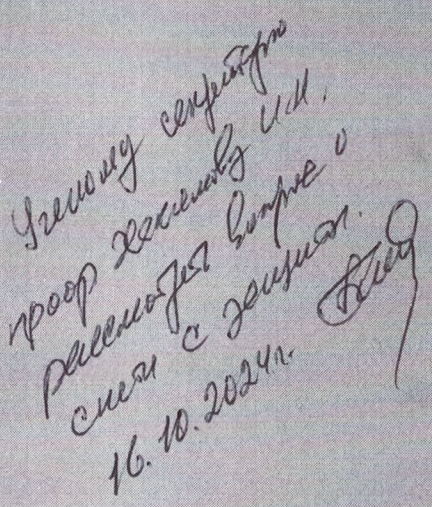 Ученому секретарю
проф Хакимову И.М.
рассмотреть вопрос о
снятии с защиты.
16.10.2024г.